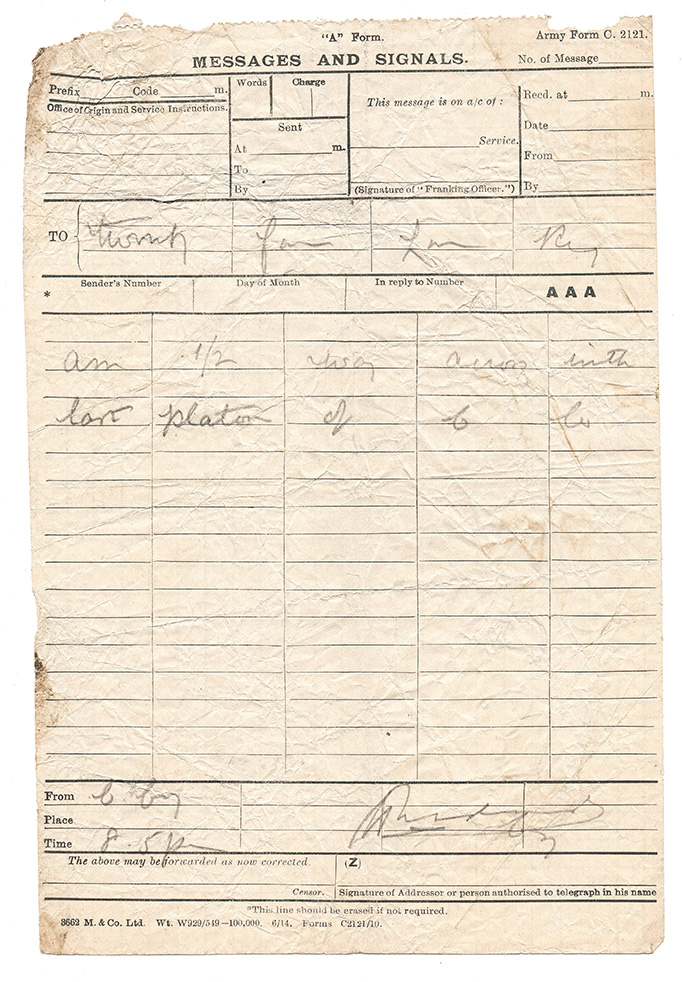 "A" Form.
Army Form C. 2121.
MESSAGES AND SIGNALS.
No. of Message
Prefix Code m.
Office of Origin and Service Instructions.
Words Charge
Sent
At m.
To
By
This message is on a/c of :
Service.
(Signature of "Franking Officer.")
Recd. at m.
Date
From
By
TO
Sender's Number Day of Month In reply to Number
* A A A
am 1/2 way across with
last platoon of C Co
From C Coy
Place
Time 8.5 pm
The above may be forwarded as now corrected. (Z)
Censor. Signature of Addressor or person authorised to telegraph in his name
*This line should be erased if not required.
8662 M. & Co. Ltd. Wt. W929/549—100,000. 6/14. Forms C2121/10.